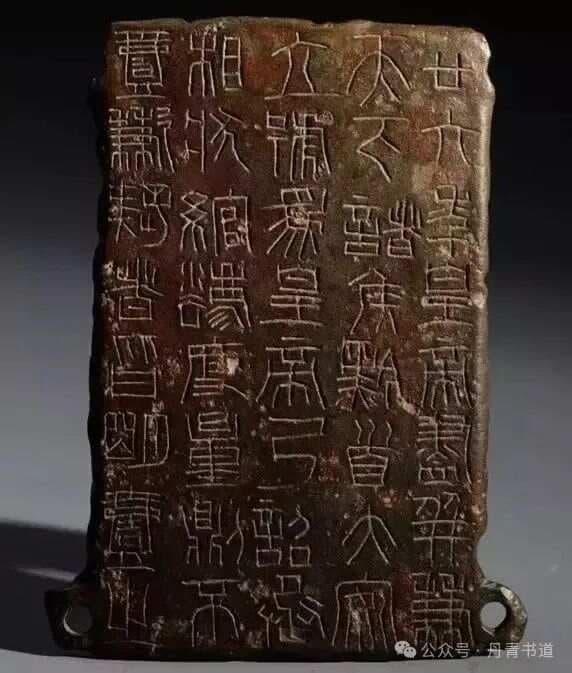 廿六年皇帝盡并兼
天下諸矦黔首大安
立號爲皇帝乃詔丞
相狀綰灋度量鼎不
壹歉疑者皆明壹之
公众号·丹青书道